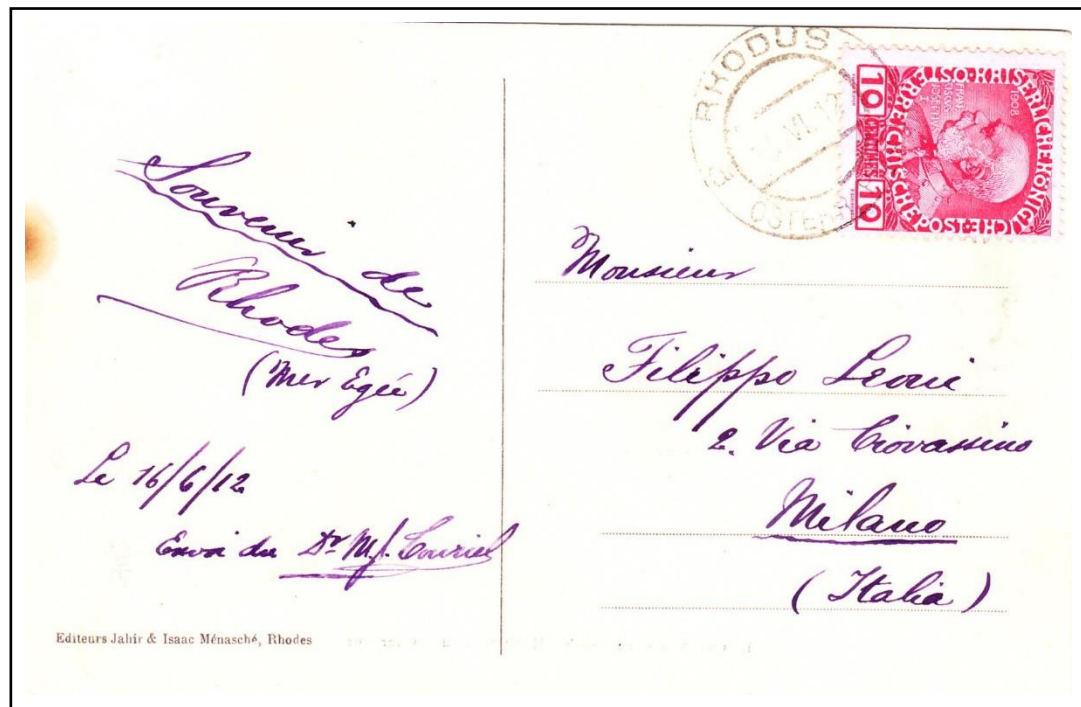 Souvenir de
Rhodes
(Mer Egée)
Le 16/6/12
Envoi du Dr M.
Editeurs Jahir & Isaac Ménasché, Rhodes
RHODUS
VI 12
OSTERR
10 CENTIMES 10
KAISERLICHE KÖNIGLICHE
ÖSTERREICHISCHE POST
1908
Monsieur
Filippo Leoni
2. Via Ciovassino
Milano
(Italia)